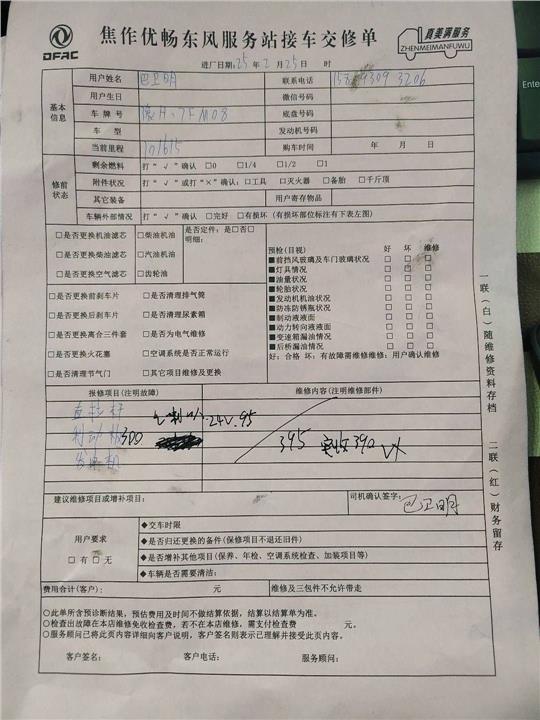 DFAC
焦作优畅东风服务站接车交修单
真美满服务
ZHENMEIMANFUWU
进厂日期:25年2月25日 时
用户姓名 巴卫明 联系电话
基本信息
用户生日 微信号码
车牌号 底盘号码
车型 发动机号码
当前里程 101615 购车时间 年 月 日
修前状态
剩余燃料 打“√”确认 □0 □1/4 □1/2 □1
附件状况 打“√”或打“×”确认:□工具 □灭火器 □备胎 □千斤顶
其它装备 用户寄存物品
车辆外部情况 打“√”确认 □完好 □有损坏(有损坏部位标注有下表左图)
□是否更换机油滤芯 □柴油机油 是否定件:是□否□
明细:
□是否更换柴油滤芯 □汽油机油
□是否更换空气滤芯 □齿轮油
□是否更换前刹车片 □是否清理排气筒
□是否更换后刹车片 □是否清理尿素箱
□是否更换离合三件套 □是否为电气维修
□是否更换火花塞 □空调系统是否正常运行
□是否清理节气门 □其它项目维修及更换
预检(目视) 好 坏 维修
■前挡风玻璃及车门玻璃状况 □ □ □
■灯具情况 □ □ □
■油量状况 □ □ □
■轮胎状况 □ □ □
■发动机机油状况 □ □ □
■防冻防锈瓶状况 □ □ □
■制动液液面 □ □ □
■动力转向液液面 □ □ □
■变速箱漏油情况 □ □ □
■后桥漏油情况 □ □ □
好:合格 坏:有故障需维修维修:用户确认维修
报修项目(注明故障) 维修内容(注明维修部件)
直拉杆 24V.95
300
395 实收390
发电机
建议维修项目或增补项目: 司机确认签字: 巴卫明
用户要求
□有□无
◆交车时限
◆是否归还更换的备件(保修项目不退还旧件)
◆是否增补其他项目(保养、年检、空调系统检查、加装项目等)
◆车辆是否需要清洁:
费用合计(客户): 元 维修及三包件不允许带走
○此单所含预诊断结果,预估费用及时间不做结算依据,结算以结算单为准。
○检查出故障在本店维修免收检查费,若不在本店维修,需支付检查费 元。
○服务顾问已将此页内容详细向客户说明,客户签名则表示已理解并接受此页内容。
客户签名: 客户电话: 服务顾问:
一联(白)随维修资料存档 二联(红)财务留存
Ente